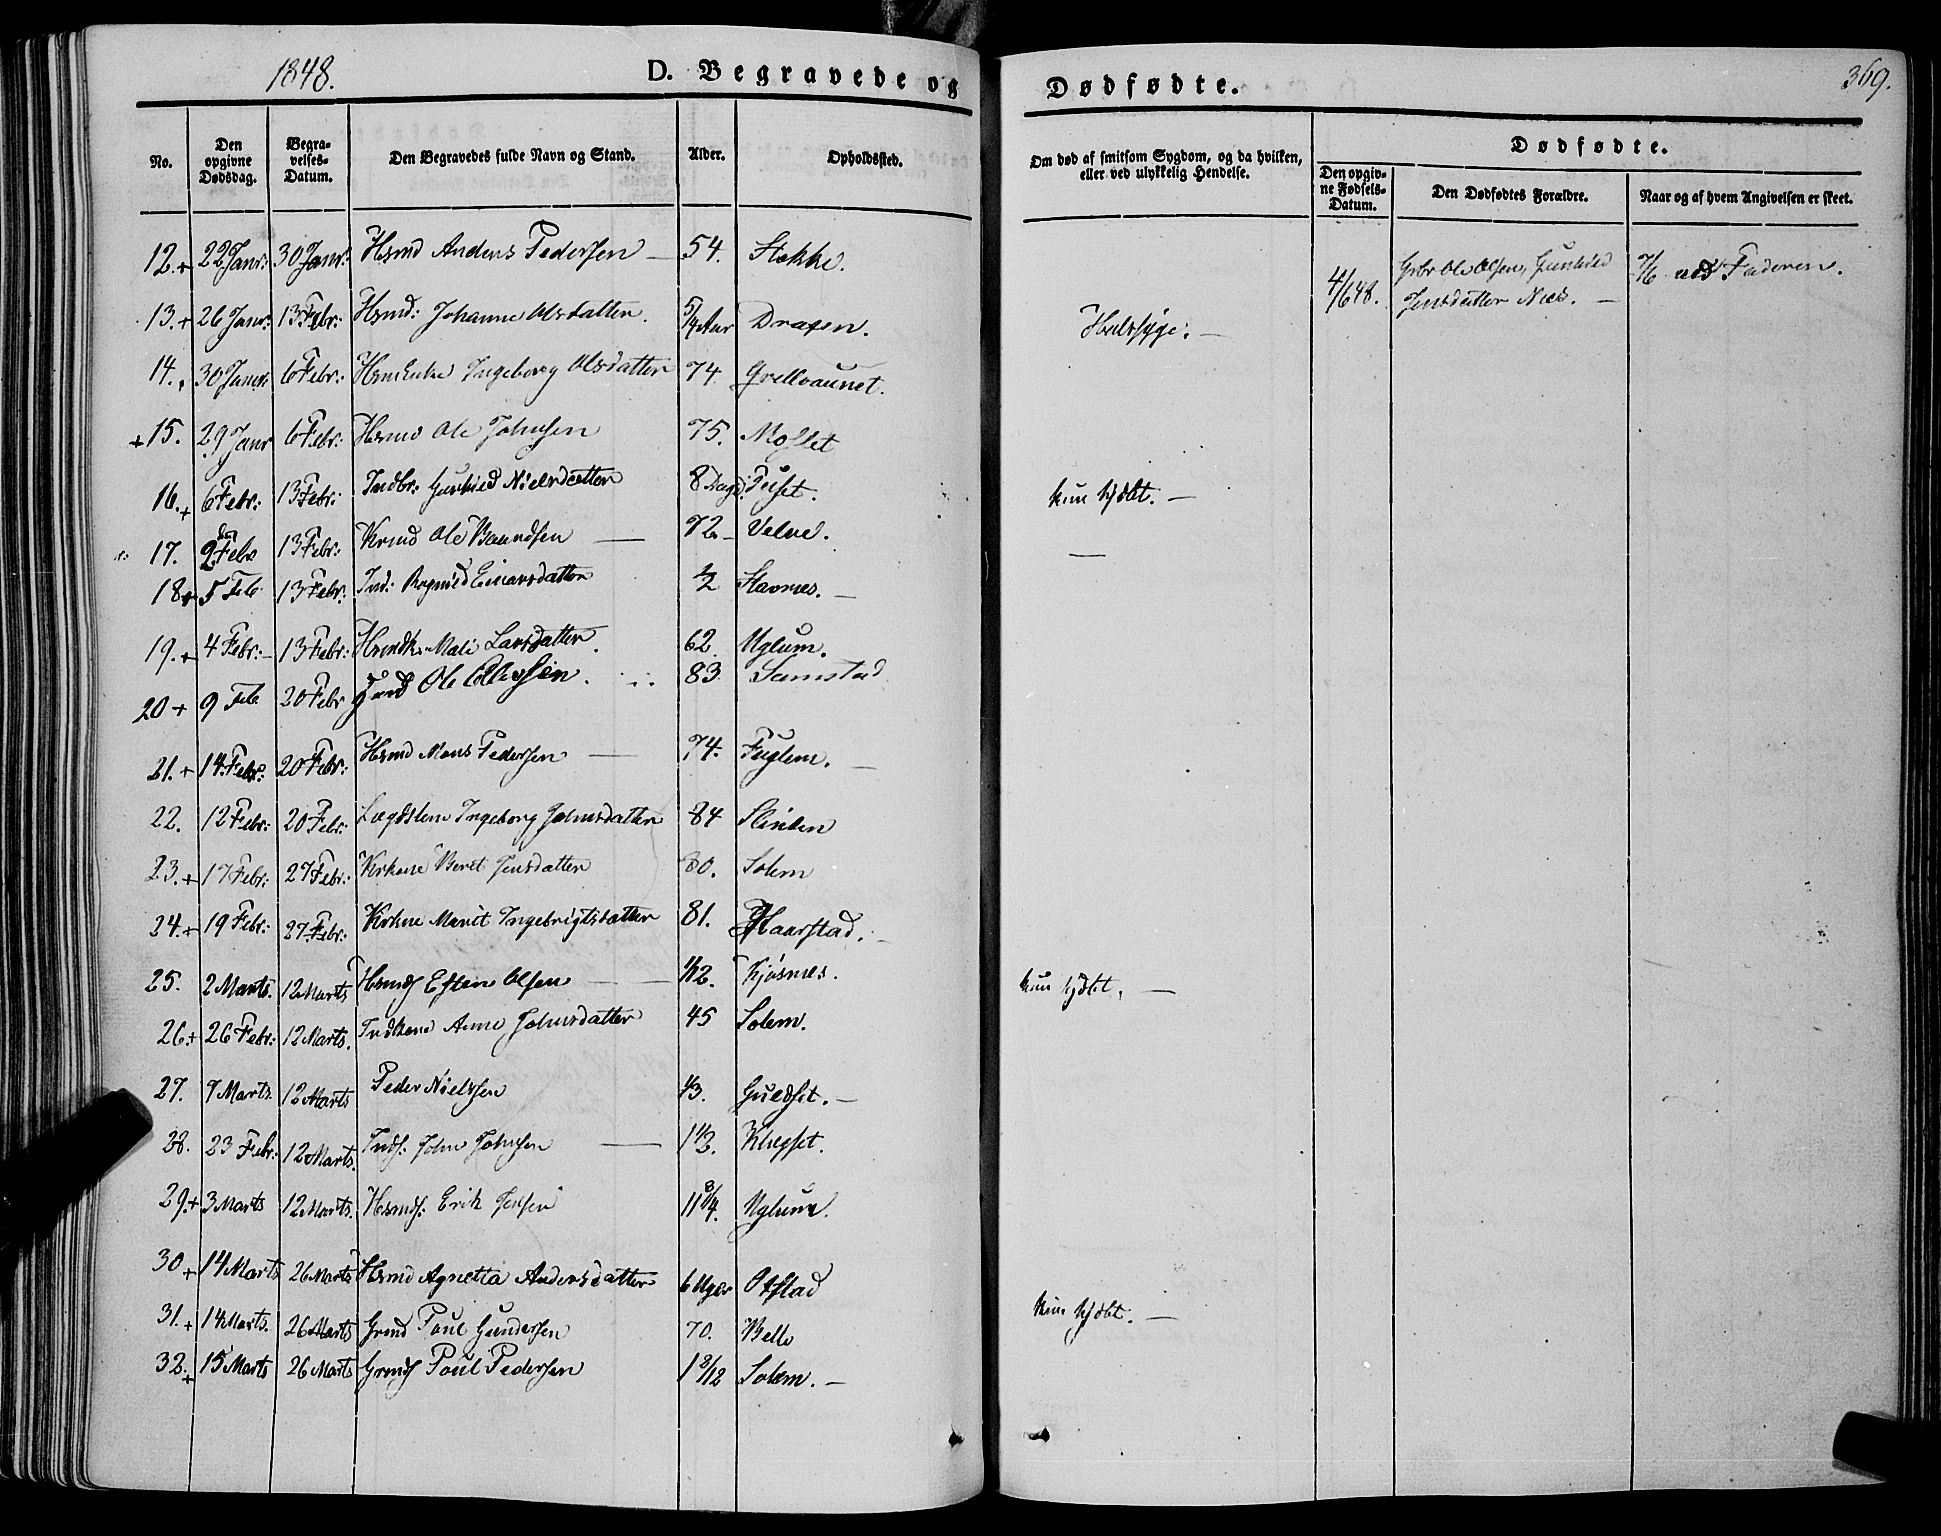 1848.
D. Begravede og
Dødfødte.
369.
No.
Den opgivne Dødsdag.
Begravelses-Datum.
Den Begravedes fulde Navn og Stand.
Alder.
Opholdssted.
Om død af smitsom Sygdom, og da hvilken, eller ved ulykkelig Hendelse.
Dødfødte.
Den opgivne Fødsels-Datum.
Den Dødfødtes Forældre.
Naar og af hvem Angivelsen er skeet.
12. + 22 Janr: 30 Janr: Hsmd Anders Pedersen — 54. Stokke.
4/6 48. Gbr Ole Olsen, Gunhild Jensdatter Næs. — 7/6 ved Faderen.
13. + 26 Janr: 13 Febr: Hsmd: Johanne Olsdatter. 5/4 Aar Draxen. Halssyge. —
14. 30 Janr: 6 Febr: Ingeborg Olsdatter 74. Qvellvaunet.
+ 15. 29 Janr 6 Febr: Hsmd Ole Johnsen 75. Moslet
16. + 6 Febr: 13 Febr: Indbr: Gunhild Nielsdatter 8 Dage. kun hjdbt. —
17. 2 Febr 13 Febr: Krmd Ole Baardsen — 72 – Velve. —
18 + 5 Feb 13 Febr: Ind: Ragnild Einarsdatter 1/2 Stavnes. —
19. + 4 Febr: – 13 Febr: Hsmdk. Mali Larsdatter. 62 Uglum.
20 + 9 Feb 20 Febr Ole Olessen. 83 Samstad
21. + 14 Febr: 20 Febr: Hsmd Mons Pedersen — 74. Fuglem. —
22. 12 Febr: 20 Febr: Lægdslem Ingeborg Johnsdatter 84 Slinden
23. + 17 Febr: 27 Febr: Krkone Beret Jensdatter 80. Solem
24. + 19 Febr: 27 Febr: Krkne Marit Ingebrigtsdatter 81. Haarstad. —
25. 2 Marts. 12 Marts Hsmds Esten Olsen — — 1/12. Kjøsnes. kun hjdbt. —
26. + 26 Febr: 12 Marts. Indkone Anne Johnsdatter 45 Solem.
27. 7 Marts 12 Marts Peder Nielssen 43. Guldset. —
28. 23 Febr: 12 Marts. Inds: John Johnsen — 1 1/2. Klegset.
29. + 3 Marts 12 Marts. Hsmds: Erik Jensen 11 3/4. Uglum.
30 + 14 Marts 26 Marts Hsmd Agnetta Andersdatter 6 Uger Ostad kun hjdbt. —
31. + 14 Marts. 26 Marts Grmd Poul Gundersen 70. Velve
32. + 15 Marts 26 Marts Grmds Poul Pedersen 1 8/12 Solem. —